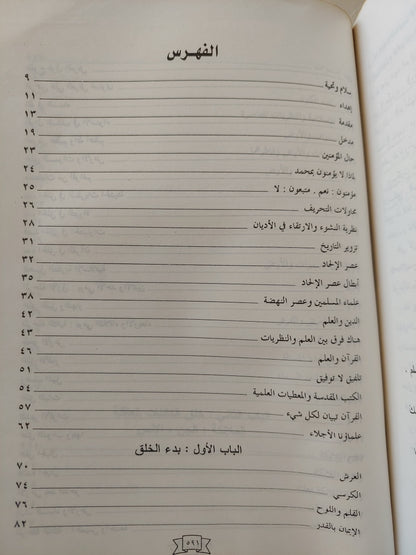 الفهرس
سلام وتحية ٩
إهداء ١١
مقدمة ١٣
مدخل ١٩
حال المؤمنين ٢٣
لماذا لا يؤمنون بمحمد ٢٤
مؤمنون : نعم . متبعون : لا ٢٥
محاولات التحريف ٢٦
نظرية النشوء والارتقاء في الأديان ٢٨
تزوير التاريخ ٣١
عصر الإلحاد ٣٢
أبطال عصر الإلحاد ٣٥
علماء المسلمين وعصر النهضة ٣٨
الدين والعلم ٤٢
هناك فرق بين العلم والنظريات ٤٣
القرآن والعلم ٤٦
تلفيق لا توفيق ٥١
الكتب المقدسة والمعطيات العلمية ٥٤
القرآن تبيان لكل شيء ٥٧
علماؤنا الأجلاء ٦٢
الباب الأول : بدء الخلق
العرش ٧٠
الكرسي ٧٤
القلم واللوح ٧٦
الإيمان بالقدر ٨٢
٥٩١